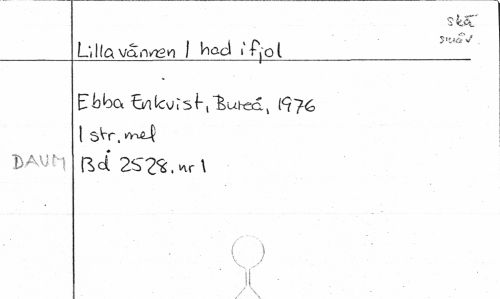 skå
Lilla vännen I had i fjol
Ebba Enkvist, Bureå, 1976
1 str, mel
DAUM Bd 2528, nr 1